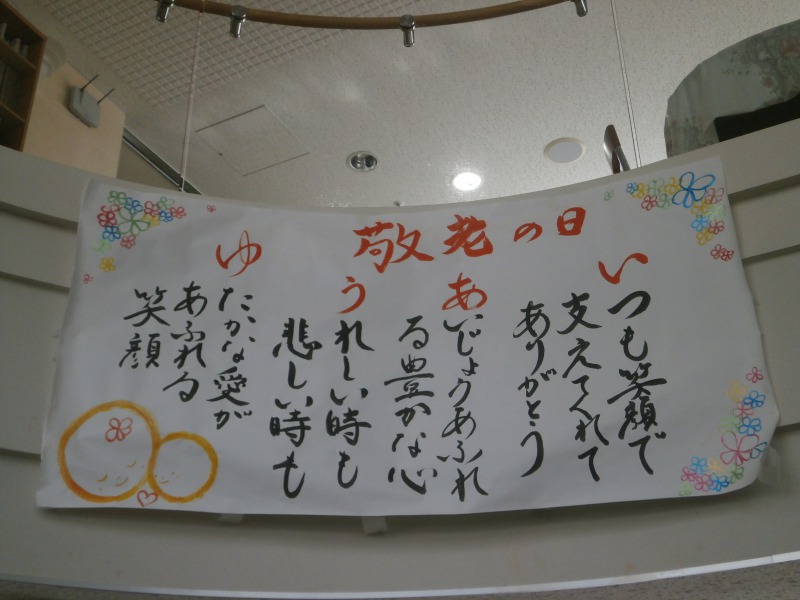 敬老の日
いつも笑顔で
支えてくれて
ありがとう
あいじょうあふれ
る豊かな心
うれしい時も
悲しい時も
ゆたかな愛が
あふれる
笑顔